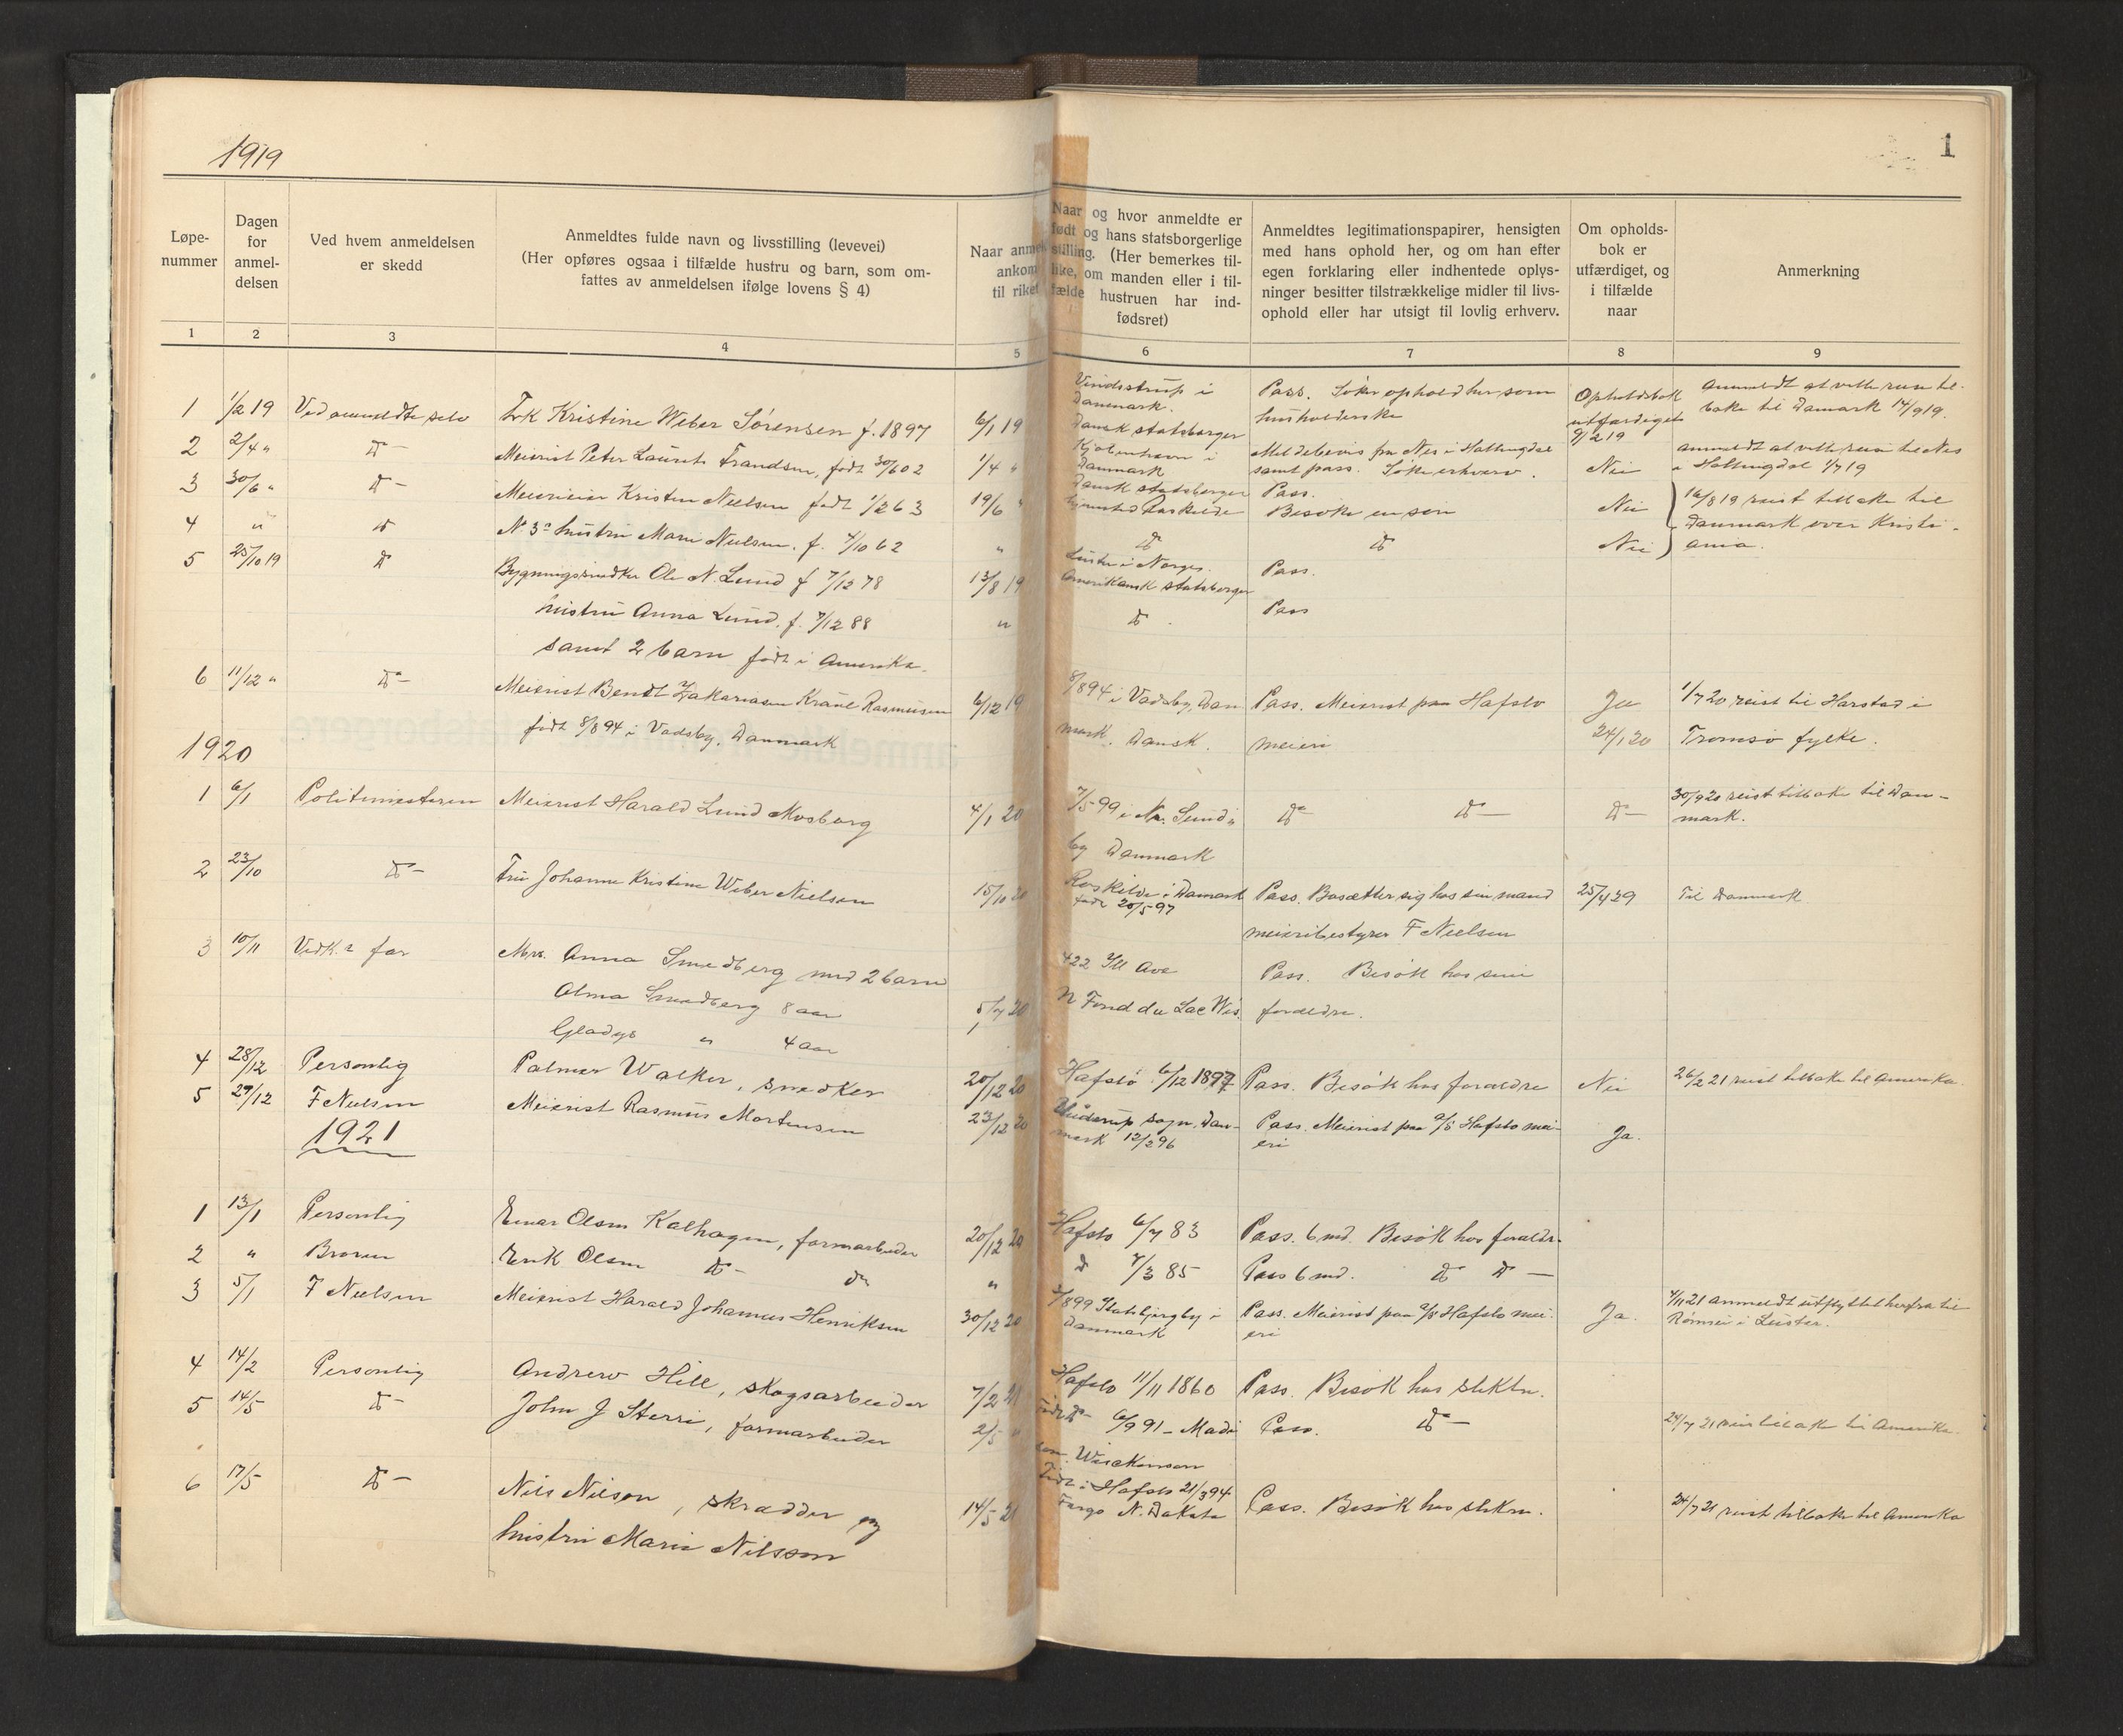 1919
1
Løpe-
nummer
Dagen
for
anmel-
delsen
Ved hvem anmeldelsen
er skedd
Anmeldtes fulde navn og livsstilling (levevei)
(Her opføres ogsaa i tilfælde hustru og barn, som om-
fattes av anmeldelsen ifølge lovens § 4)
Naar
ankom
til riket
Naar og hvor anmeldte er
født og hans statsborgerlige
stilling. (Her bemerkes til-
like, om manden eller i til-
fælde hustruen har ind-
fødsret)
Anmeldtes legitimationspapirer, hensigten
med hans ophold her, og om han efter
egen forklaring eller indhentede oplys-
ninger besitter tilstrækkelige midler til livs-
ophold eller har utsigt til lovlig erhverv.
Om opholds-
bok er
utfærdiget, og
i tilfælde
naar
Anmerkning
1 2 3 4 5 6 7 8 9
1 1/2 19 Ved anmeldte selv Frk Kristine Weber Sørensen f. 1897 6/1 19
Vindstrup i
Danmark.
Dansk statsborger
Pass. Søker ophold her som
husholderske
Opholdsbok
utfærdiget
9/2 19
Anmeldt at ville reise til-
bake til Danmark 14/9 19.
2 2/4 " do- Meierist Peter Laurits Frandsen, født 30/6 02 1/4 "
Kjøbenhavn i
Danmark
Dansk statsborger
Meldebevis fra Nes i Hallingdal
samt pass. Søker erhverv.
Nei
anmeldt at ville reise til Nes
i Hallingdal 1/7 19
3 30/6 " do- Meierieier Kristen Nielsen født 1/2 63 19/6 "
Roskilde
Pass.
Besøke en søn
Nei
16/8 19 reist tilbake til
Danmark over Kristi-
ania.
4 " do No 3s hustru Marie Nielsen. f. 4/10 62 "
do do Nei
5 25/10 19 do Bygningssnedker Ole N. Lund f 7/12 78 13/8 19
Luster i Norge.
Amerikansk statsborger
Pass.
hustru Anna Lund. f. 7/12 88 " do. Pass
samt 2 barn født i Amerika.
6 11/12 " do- Meierist Bendt Zakariasen Kraul Rasmussen 6/12 19
født 8/8 94 i Vadsby, Danmark
8/8 94 i Vadsby, Dan
mark. Dansk.
Pass. Meierist paa Hafslo
meieri
Ja
24/1 20
1/7 20 reist til Harstad i
Tromsø fylke.
1920
1 6/1 Politimesteren Meierist Harald Lund Mosborg 4/1 20
7/5 99 i Nr. Sund
by Danmark
do- do- do-
30/9 20 reist tilbake til Dan-
mark.
2 23/10 do- Fru Johanne Kristine Weber Nielsen 15/10 20
Roskilde i Danmark
født 20/5 97
Pass. Bosætter sig hos sin mand
meieribestyrer F Nielsen
25/4 29
Til Danmark
3 10/11 Vedk.s far Mrs. Anna Smedberg med 2 barn
Alma Smedberg 8 aar 5/7 20
Gladys " 4 aar
422 Ill Ave
N Fond du Lac Wis.
Pass. Besøk hos sine
forældre.
4 28/12 Personlig Palmer Walker, snedker 20/12 20
Hafslo 6/12 1897 Pass. Besøk hos forældre Nei 26/2 21 reist tilbake til Amerika.
5 29/12 F Nielsen Meierist Rasmus Mortensen 23/12 20
sogn, Dan-
mark 12/2 96
Pass. Meierist paa a/s Hafslo mei-
eri
Ja.
1921
1 13/1 Personlig Einar Olsen Kalhagen, farmarbeider 20/12 20
Hafslo 6/7 83 Pass. 6 md. Besøk hos forældr.
2 " Broren Erik Olsen do- do "
d 7/3 85 Pass 6 md. do do-
3 5/1 F Nielsen Meierist Harald Johannes Henriksen 30/12 20
i
Danmark
Pass. Meierist paa a/s Hafslo mei-
eri
Ja.
4/11 21 anmeldt utflyttet herfra til
i Luster.
4 14/2 Personlig Andrew Hill, skogsarbeider 7/2 21
Hafslo 11/11 1860 Pass. Besøk hos slektn.
5 14/5 do- John J Sterri, farmarbeider 2/5 "
født do- 6/9 91 - Madi
son. Wisckonson
Pass. do-
24/7 21 reist tilbake til Amerika.
6 17/5 do- Nils Nilson, skrædder og 14/5 21
hustru Marie Nilsson
Født i Hafslo 21/3 94
Fargo N. Dakota
Pass. Besøk hos slektn.
24/7 21 reist tilbake til Amerika